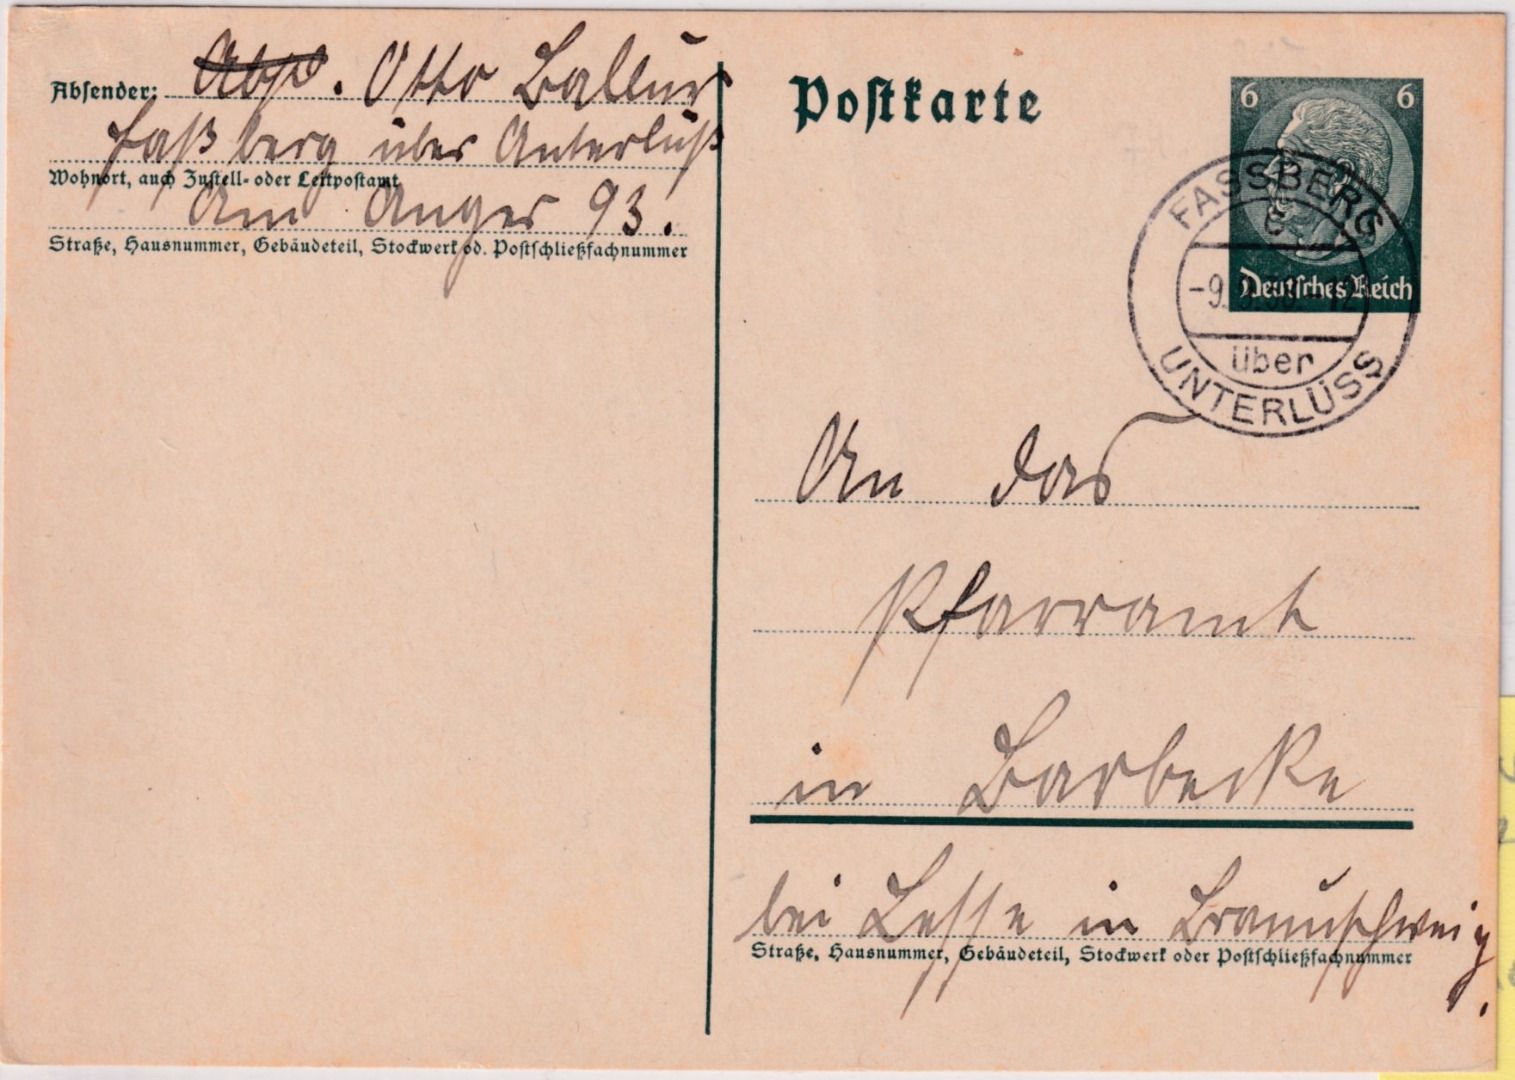 Absender: Abs. Otto Ballur
Faßberg über Unterlüß
Wohnort, auch Zustell- oder Leitpostamt
Am Anger 93.
Straße, Hausnummer, Gebäudeteil, Stockwerk od. Postschließfachnummer
Postkarte
6 6
Deutsches Reich
FASSBERG
-9.
über
UNTERLÜSS
An das
Pfarramt
in Barbecke
bei Lesse in Braunschweig.
Straße, Hausnummer, Gebäudeteil, Stockwerk oder Postschließfachnummer